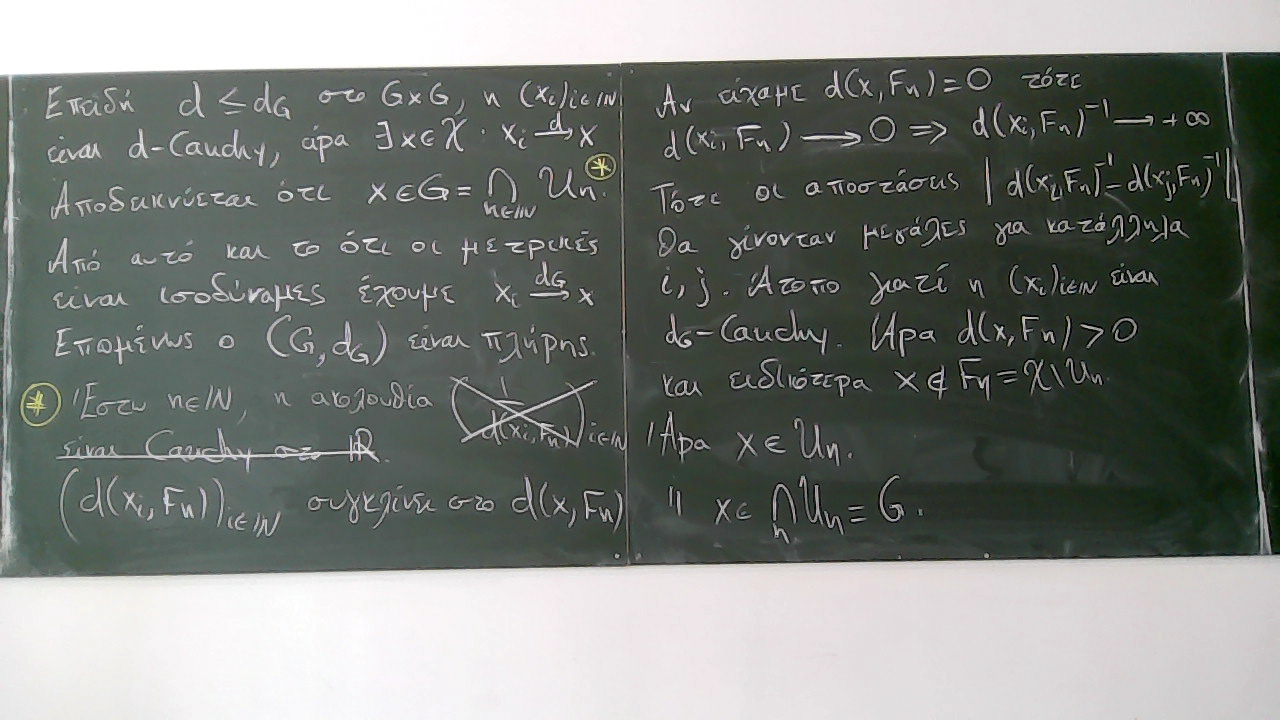 Επειδή d ≤ d_G στο G×G, η (x_i)_{i∈ℕ}
είναι d-Cauchy, άρα ∃x∈X · x_i →^d x
Αποδεικνύεται ότι x∈G = ⋂_{n∈ℕ} U_n. *
Από αυτό και το ότι οι μετρικές
είναι ισοδύναμες έχουμε x_i →^{d_G} x
Επομένως ο (G, d_G) είναι πλήρης.
* Έστω n∈ℕ, η ακολουθία (1/d(x_i, F_n))_{i∈ℕ}
είναι Cauchy στο ℝ.
(d(x_i, F_n))_{i∈ℕ} συγκλίνει στο d(x, F_n)
Αν είχαμε d(x, F_n) = 0 τότε
d(x_i, F_n) → 0 ⇒ d(x_i, F_n)^{-1} → +∞
Τότε οι αποστάσεις | d(x_i, F_n)^{-1} - d(x_j, F_n)^{-1} |
θα γίνονταν μεγάλες για κατάλληλα
i, j. Άτοπο γιατί η (x_i)_{i∈ℕ} είναι
d_G-Cauchy. Άρα d(x, F_n) > 0
και ειδικότερα x ∉ F_n = X \ U_n
Άρα x ∈ U_n.
" x ∈ ⋂_n U_n = G.